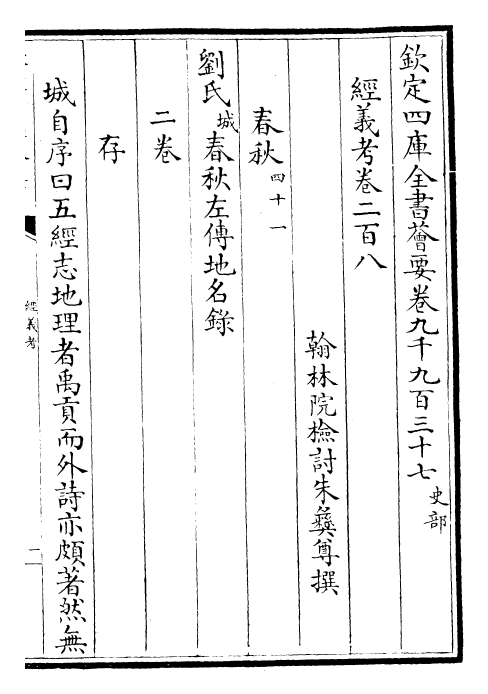 欽定四庫全書薈要卷九千九百三十七史部
經義考卷二百八
翰林院檢討朱彝尊撰
春秋四十一
劉氏城春秋左傳地名錄
二卷
存
城自序曰五經志地理者禹貢而外詩亦頗著然無
經義考
二